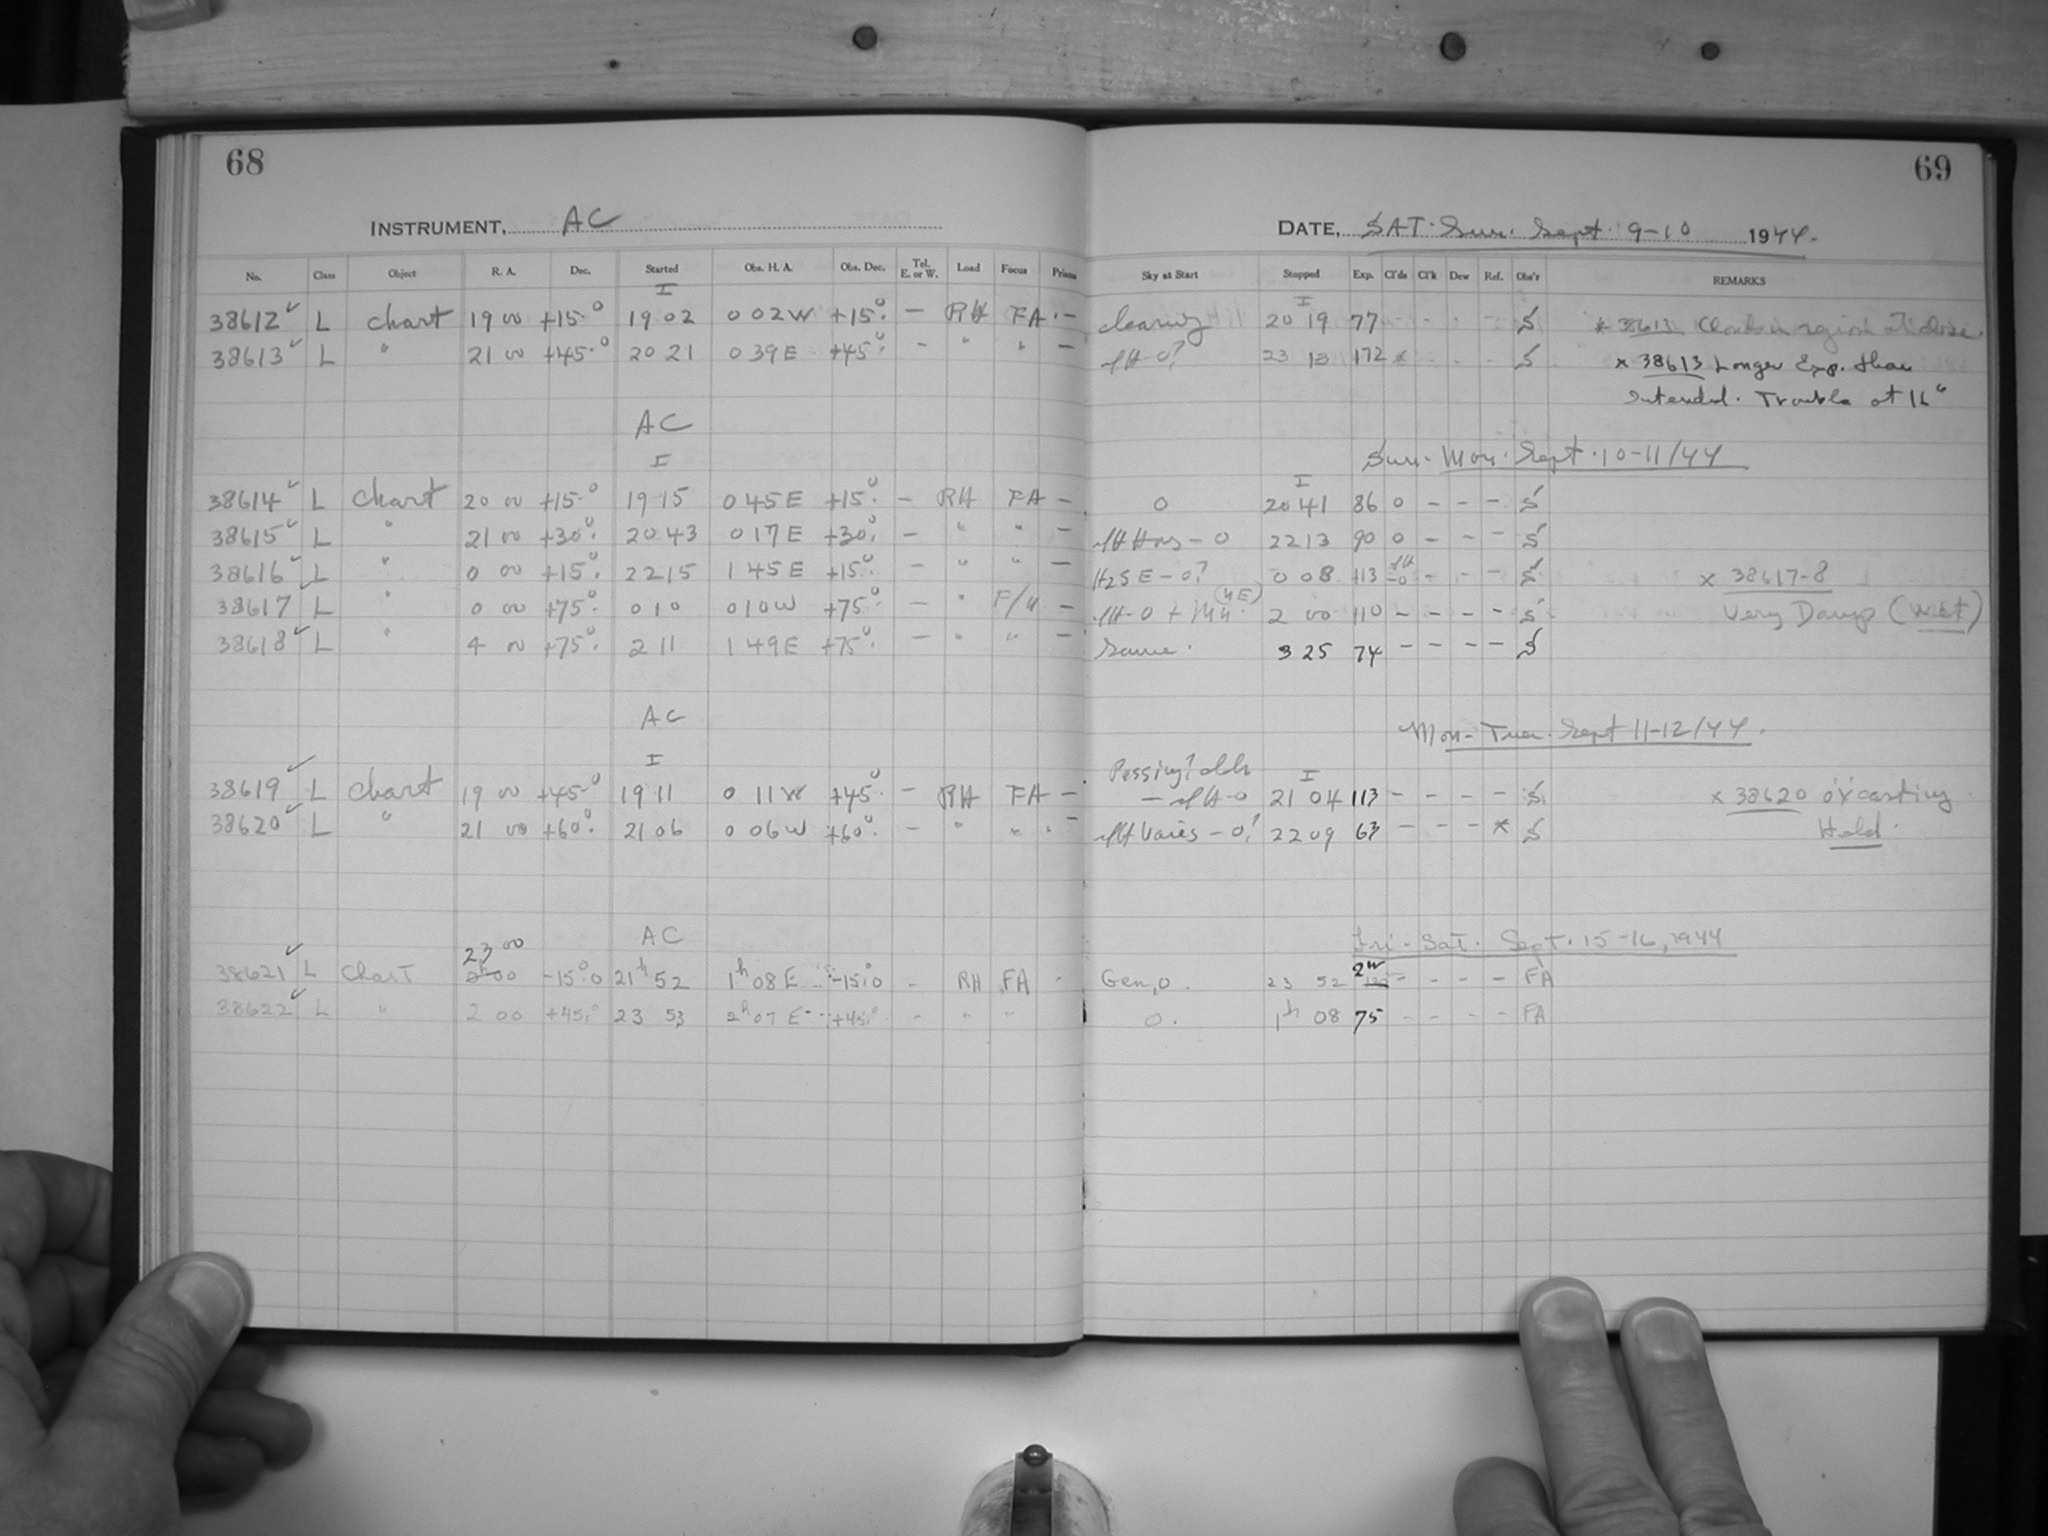 68
69
INSTRUMENT, AC
DATE, SAT-Sun. Sept. 9-10 1944.
No. Class Object R. A. Dec. Started Obs. H. A. Obs. Dec. Tel. E. or W. Load Focus Prisms Sky at Start Stopped Exp. Cl'ds Cl'k Dew Ref. Obs'r REMARKS
I I
38612 ✓ L Chart 19 00 +15.° 19 02 0 02 W +15°. - RH FA - clearing 20 19 77 - - - - S
38613 ✓ L " 21 00 +45.° 20 21 0 39 E +45°. - " " - 23 13 172 x - - - S x 38613 Longer Exp. than
Intended. Trouble at 16"
AC
Sun-Mon. Sept. 10-11/44
I I
38614 ✓ L Chart 20 00 +15.° 19 15 0 45 E +15°. - RH FA - 0 20 41 86 0 - - - S
38615 ✓ L " 21 00 +30°. 20 43 0 17 E +30°. - " " - - 0 22 13 90 0 - - - S
38616 ✓ L " 0 00 +15°. 22 15 1 45 E +15°. - " " - 0 08 113 - - - S x 38617-8
38617 ✓ L " 0 00 +75°. 0 10 0 10 W +75°. - " F/4 - 2 00 110 - - - - S Very Damp (wet)
38618 ✓ L " 4 00 +75°. 2 11 1 49 E +75°. - " " - Same. 3 25 74 - - - - S
AC
Mon-Tues. Sept 11-12/44.
I I
38619 ✓ L Chart 19 00 +45.° 19 11 0 11 W +45°. - RH FA - Passing? 21 04 113 - - - - S x 38620 o'casting
38620 ✓ L " 21 00 +60°. 21 06 0 06 W +60°. - " " - Varies - 0? 22 09 63 - - - * S Hold.
AC
Fri-Sat. Sept. 15-16, 1944
23 00
38621 ✓ L Chart 2ʰ00 -15.°0 21ʰ 52 1ʰ 08 E -15.°0 - RH FA - Gen, 0. 23 52 - - - - FA
38622 ✓ L " 2 00 +45.° 23 53 2ʰ 07 E +45.° - " " 0. 1ʰ 08 75 - - - - FA